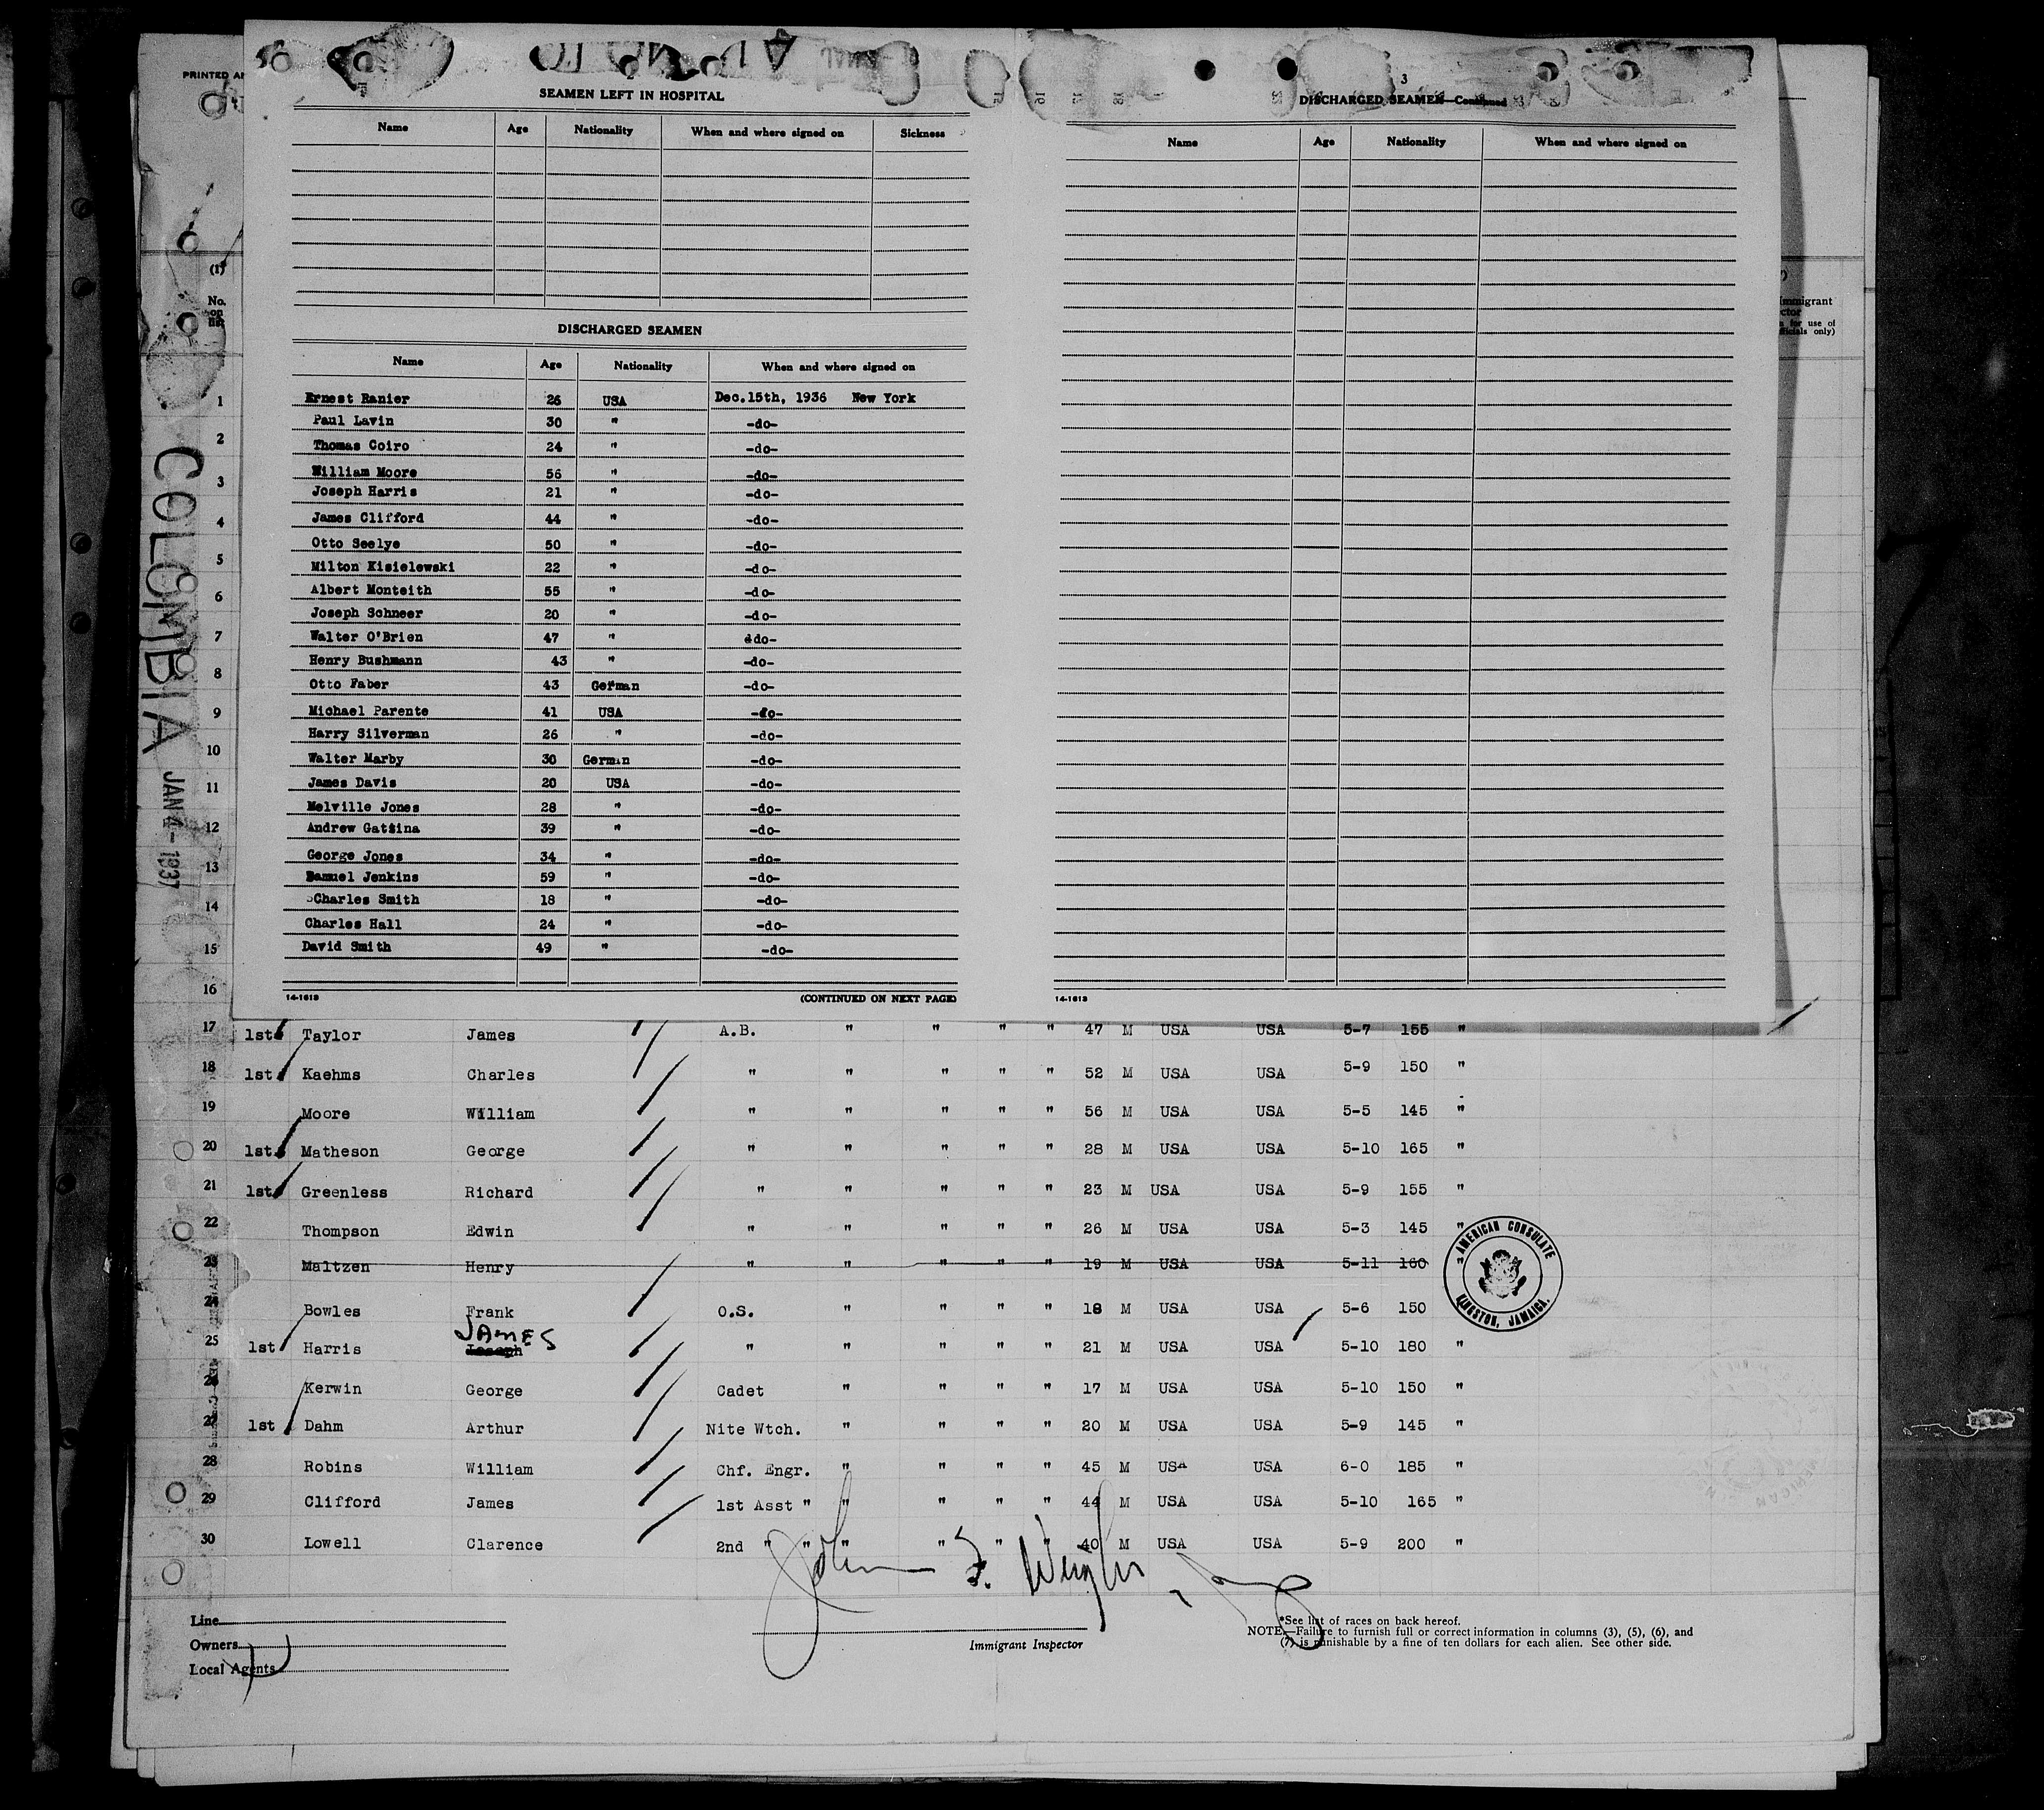 PRINTED
2
SEAMEN LEFT IN HOSPITAL
Name Age Nationality When and where signed on Sickness
DISCHARGED SEAMEN
Name Age Nationality When and where signed on
Ernest Ranier 26 USA Dec.15th, 1936 New York
Paul Lavin 30 " -do-
Thomas Coiro 24 " -do-
William Moore 56 " -do-
Joseph Harris 21 " -do-
James Clifford 44 " -do-
Otto Seelye 50 " -do-
Milton Kisielewski 22 " -do-
Albert Monteith 55 " -do-
Joseph Schneer 20 " -do-
Walter O'Brien 47 " ddo-
Henry Bushmann 43 " -do-
Otto Faber 43 German -do-
Michael Parente 41 USA -do-
Harry Silverman 26 " -do-
Walter Marby 30 German -do-
James Davis 20 USA -do-
Melville Jones 28 " -do-
Andrew Gatsina 39 " -do-
George Jones 34 " -do-
Samuel Jenkins 59 " -do-
Charles Smith 18 " -do-
Charles Hall 24 " -do-
David Smith 49 " -do-
14-1613 (CONTINUED ON NEXT PAGE)
3
DISCHARGED SEAMEN—Continued
Name Age Nationality When and where signed on
14-1613
(1)
No. on list
1
2
3
4
5
6
7
8
9
10
11
12
13
14
15
16
COLOMBIA
JAN 4-1937
Immigrant
for use of
officials only)
17 1st Taylor James A.B. " " " " 47 M USA USA 5-7 155 "
18 1st Kaehms Charles " " " " " 52 M USA USA 5-9 150 "
19 Moore William " " " " " 56 M USA USA 5-5 145 "
20 1st Matheson George " " " " " 28 M USA USA 5-10 165 "
21 1st Greenless Richard " " " " " 23 M USA USA 5-9 155 "
22 Thompson Edwin " " " " " 26 M USA USA 5-3 145 "
23 Maltzen Henry " " " " " 19 M USA USA 5-11 160 "
24 Bowles Frank O.S. " " " " 18 M USA USA 5-6 150
JAMES
25 1st Harris Joseph " " " " " 21 M USA USA 5-10 180 "
26 Kerwin George Cadet " " " " 17 M USA USA 5-10 150 "
27 1st Dahm Arthur Nite Wtch. " " " " 20 M USA USA 5-9 145 "
28 Robins William Chf. Engr. " " " " 45 M USA USA 6-0 185 "
29 Clifford James 1st Asst " " " " " 44 M USA USA 5-10 165 "
30 Lowell Clarence 2nd " " " " " " 40 M USA USA 5-9 200 "
AMERICAN CONSULATE
KINGSTON, JAMAICA.
John F.
Line
Owners
Local Agents
Immigrant Inspector
*See list of races on back hereof.
NOTE.—Failure to furnish full or correct information in columns (3), (5), (6), and
(7) is punishable by a fine of ten dollars for each alien. See other side.